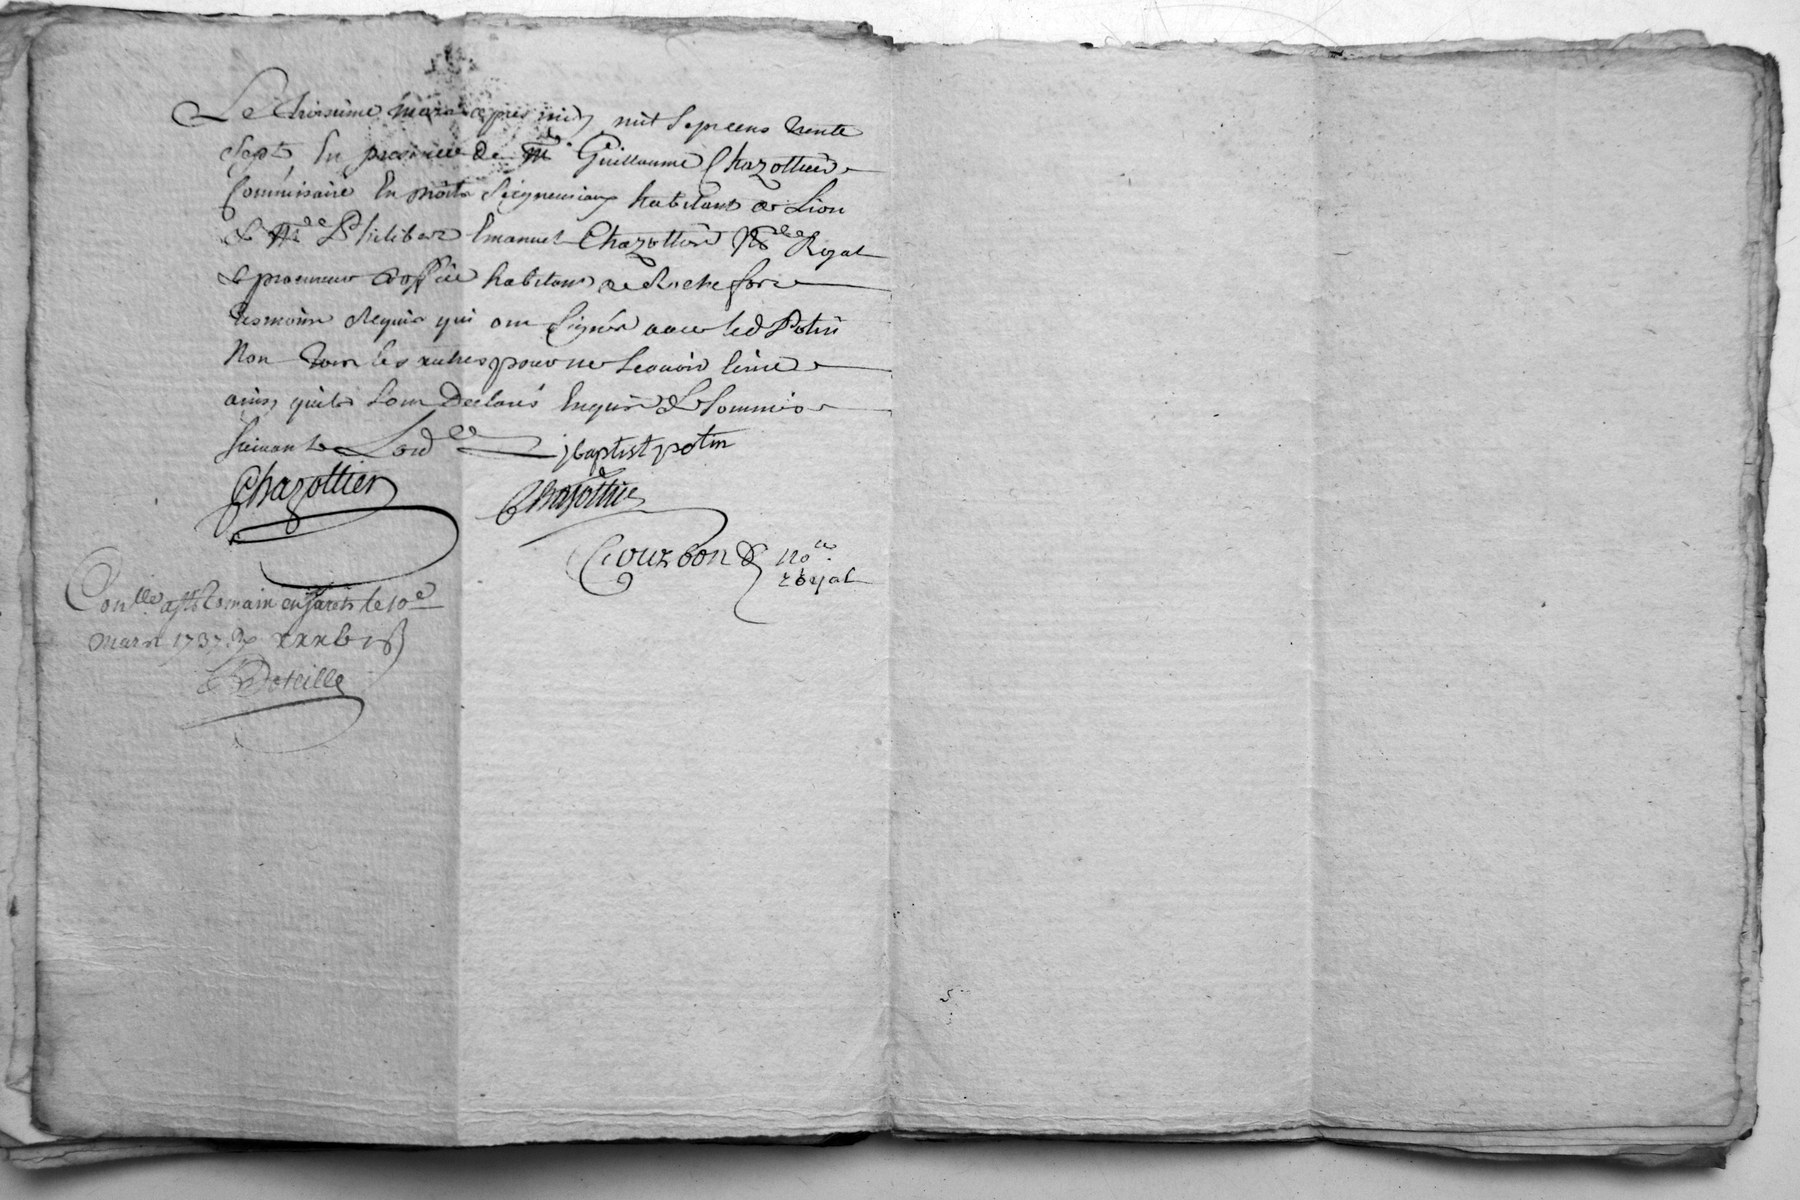 Le troisième mars apres midy mil sept cens trente
sept En presence de Me Guillaume Chazottier
Commissaire En droits Seigneuriaux habitant de Lion
& Me Philibert Emanuel Chazottier Nore Royal
& procureur d'office habitant de Rochefort
tesmoins Requis qui ont signés avec led Potin
Non tous les autres pour ne scavoir l'ecrire
ainsy quils ont Declarés Enquis & Sommés
suivant Lord ce jbaptist potin
Chazottier Chazottier
Gourbon no re
royal
Con lle a st Romain en Jarets le 10e
mars 1737
Deteille